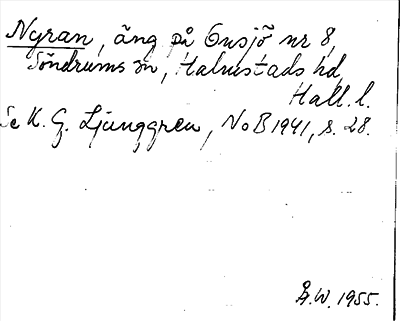 Nyran, äng på Gusjö nr 8,
Söndrums sn, Halmstads hd,
Hall. l.
Se K. G. Ljunggren, NoB 1941, s. 28.
Å.W. 1955.